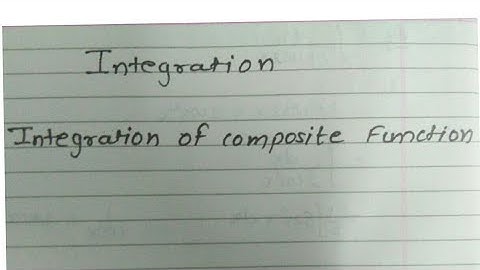 Integration
Integration of composite Function